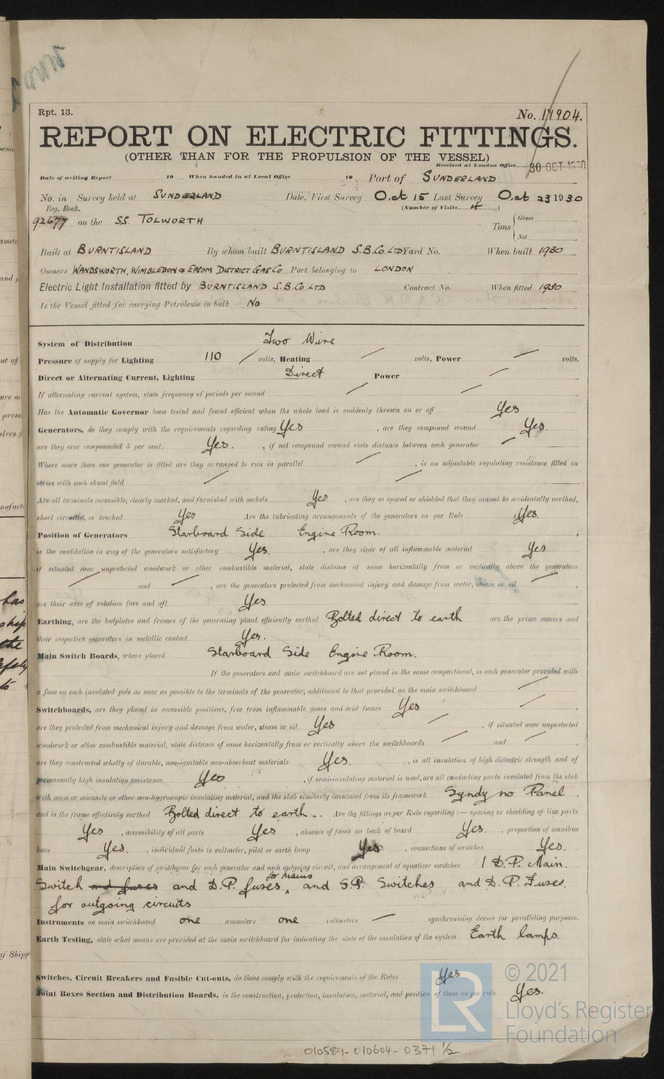 Rpt. 13.
No. 11904.
REPORT ON ELECTRIC FITTINGS.
(OTHER THAN FOR THE PROPULSION OF THE VESSEL)
Received at London Office 30 OCT 1930
Date of writing Report 19 When handed in at Local Office 19 Port of SUNDERLAND
No. in Survey held at SUNDERLAND Date, First Survey Oct 15 Last Survey Oct 23 1930
Reg. Book. (Number of Visits 4)
92677 on the SS. TOLWORTH Tons { Gross Net
Built at BURNTISLAND By whom built BURNTISLAND S.B. Co LTD Yard No. When built 1930
Owners WANDSWORTH, WIMBLEDON & EPSOM DISTRICT GAS Co Port belonging to LONDON
Electric Light Installation fitted by BURNTISLAND S.B. Co LTD Contract No. When fitted 1930
Is the Vessel fitted for carrying Petroleum in bulk No
System of Distribution Two Wire
Pressure of supply for Lighting 110 volts, Heating volts, Power volts.
Direct or Alternating Current, Lighting Direct Power
If alternating current system, state frequency of periods per second
Has the Automatic Governor been tested and found efficient when the whole load is suddenly thrown on or off Yes
Generators, do they comply with the requirements regarding rating Yes , are they compound wound Yes.
are they over compounded 5 per cent. Yes. , if not compound wound state distance between each generator
Where more than one generator is fitted are they arranged to run in parallel , is an adjustable regulating resistance fitted in
series with each shunt field
Are all terminals accessible, clearly marked, and furnished with sockets Yes , are they so spaced or shielded that they cannot be accidentally earthed,
short circuited, or touched Yes Are the lubricating arrangements of the generators as per Rule Yes.
Position of Generators Starboard Side Engine Room.
is the ventilation in way of the generators satisfactory Yes. , are they clear of all inflammable material Yes
if situated near unprotected woodwork or other combustible material, state distance of same horizontally from or vertically above the generators
and , are the generators protected from mechanical injury and damage from water, steam or oil
are their axes of rotation fore and aft Yes
Earthing, are the bedplates and frames of the generating plant efficiently earthed Bolted direct to earth are the prime movers and
their respective generators in metallic contact Yes.
Main Switch Boards, where placed Starboard Side Engine Room.
If the generators and main switchboard are not placed in the same compartment, is each generator provided with
a fuse on each insulated pole as near as possible to the terminals of the generator, additional to that provided on the main switchboard
Switchboards, are they placed in accessible positions, free from inflammable gases and acid fumes Yes
are they protected from mechanical injury and damage from water, steam or oil Yes , if situated near unprotected
woodwork or other combustible material, state distance of same horizontally from or vertically above the switchboards and
are they constructed wholly of durable, non-ignitable non-absorbent materials Yes. , is all insulation of high dielectric strength and of
permanently high insulation resistance Yes , if semi-insulating material is used, are all conducting parts insulated from the slab
with mica or micanite or other non-hygroscopic insulating material, and the slab similarly insulated from its framework Syndy no Panel,
and is the frame effectively earthed Bolted direct to earth. Are the fittings as per Rule regarding:— spacing or shielding of live parts
Yes , accessibility of all parts Yes , absence of fuses on back of board Yes. , proportion of omnibus
bars Yes. , individual fuses to voltmeter, pilot or earth lamp Yes , connections of switches Yes.
Main Switchgear, description of switchgear for each generator and each outgoing circuit, and arrangement of equalizer switches 1 D.P. Main
Switch and fuses and D.P. fuses for mains, and S.P. Switches and D.P. Fuses
for outgoing circuits
Instruments on main switchboard one ammeters one voltmeters synchronising device for paralleling purposes.
Earth Testing, state what means are provided at the main switchboard for indicating the state of the insulation of the system Earth lamps.
Switches, Circuit Breakers and Fusible Cut-outs, do these comply with the requirements of the Rules Yes
Joint Boxes Section and Distribution Boards, is the construction, protection, insulation, material, and position of these as per rule Yes.
LR
© 2021
Lloyd's Register
Foundation
010589-010604-0371 1/2